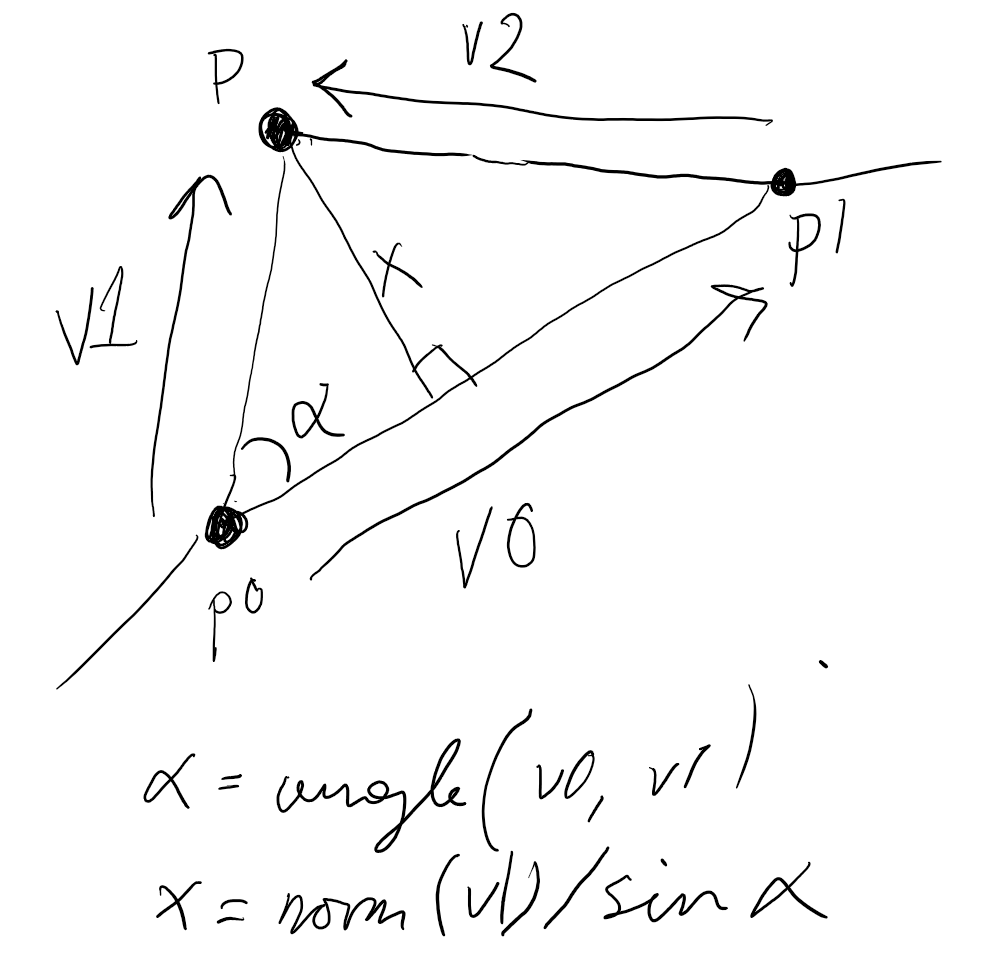 v2
P
p1
x
v1
α
v0
p0
α = angle(v0, v1)
x = norm(v1)/sin α